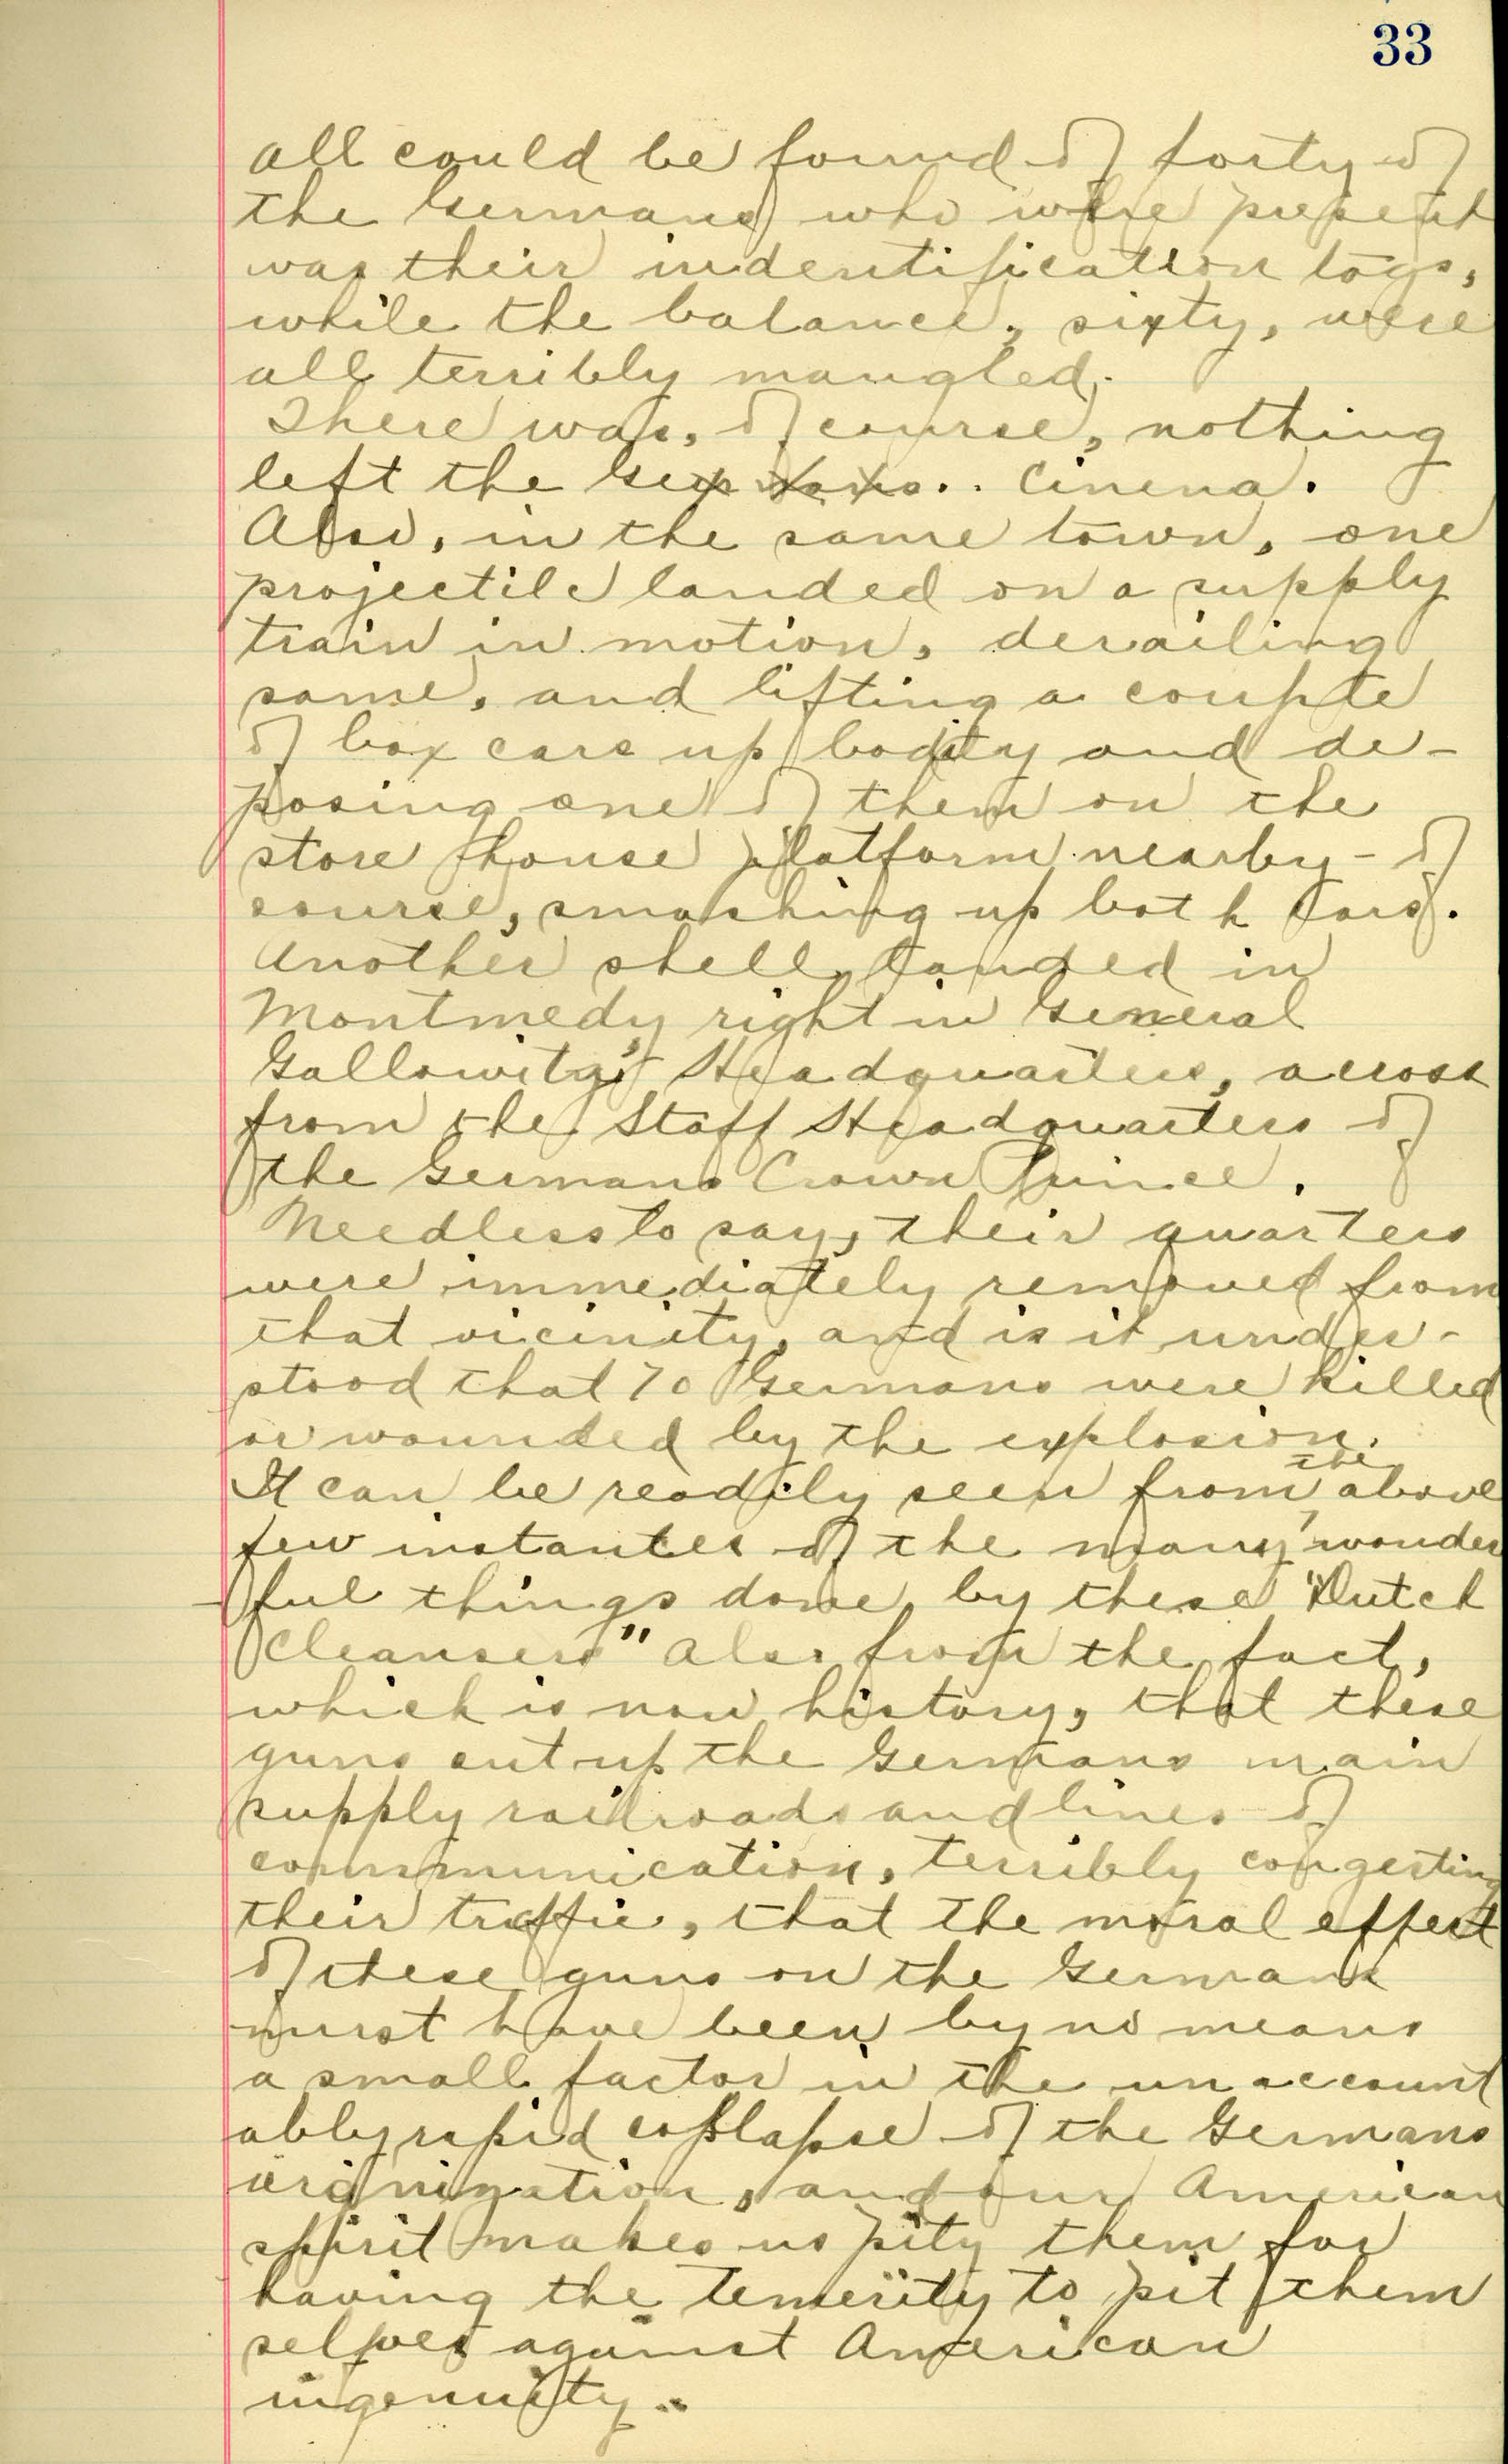 33
all could be found of forty of
the Germans who were present
was their indentification tags,
while the balance, sixty, were
all terribly mangled.
There was, of course, nothing
left the Germans.. Cinema.
Also, in the same town, one
projectile landed on a supply
train in motion, derailing
same, and lifting a couple
of box cars up bodily and de-
posing one of them on the
store house platform nearby - of
course, smashing up both cars.
Another shell landed in
Montmedy right in General
Gallowitz's Headquarters, across
from the Staff Headquarters of
the Germans Crown Prince.
Needless to say, their quarters
were immediately removed from
that vicinity, and is it under-
stood that 70 Germans were killed
or wounded by the explosion.
It can be readily seen from the above
few instantes of the many wonder
ful things done, by these "Dutch
Cleansers" also from the fact,
which is now history, that these
guns cut up the Germans main
supply railroads and lines of
communication, terribly congesting
their traffic, that the moral effect
of these guns on the Germans
must have been by no means
a small factor in the unaccount
ably rapid collapse of the Germans
orignization, and our American
spirit makes us pity them for
having the temerity to pit them
selves against American
ingenuity.